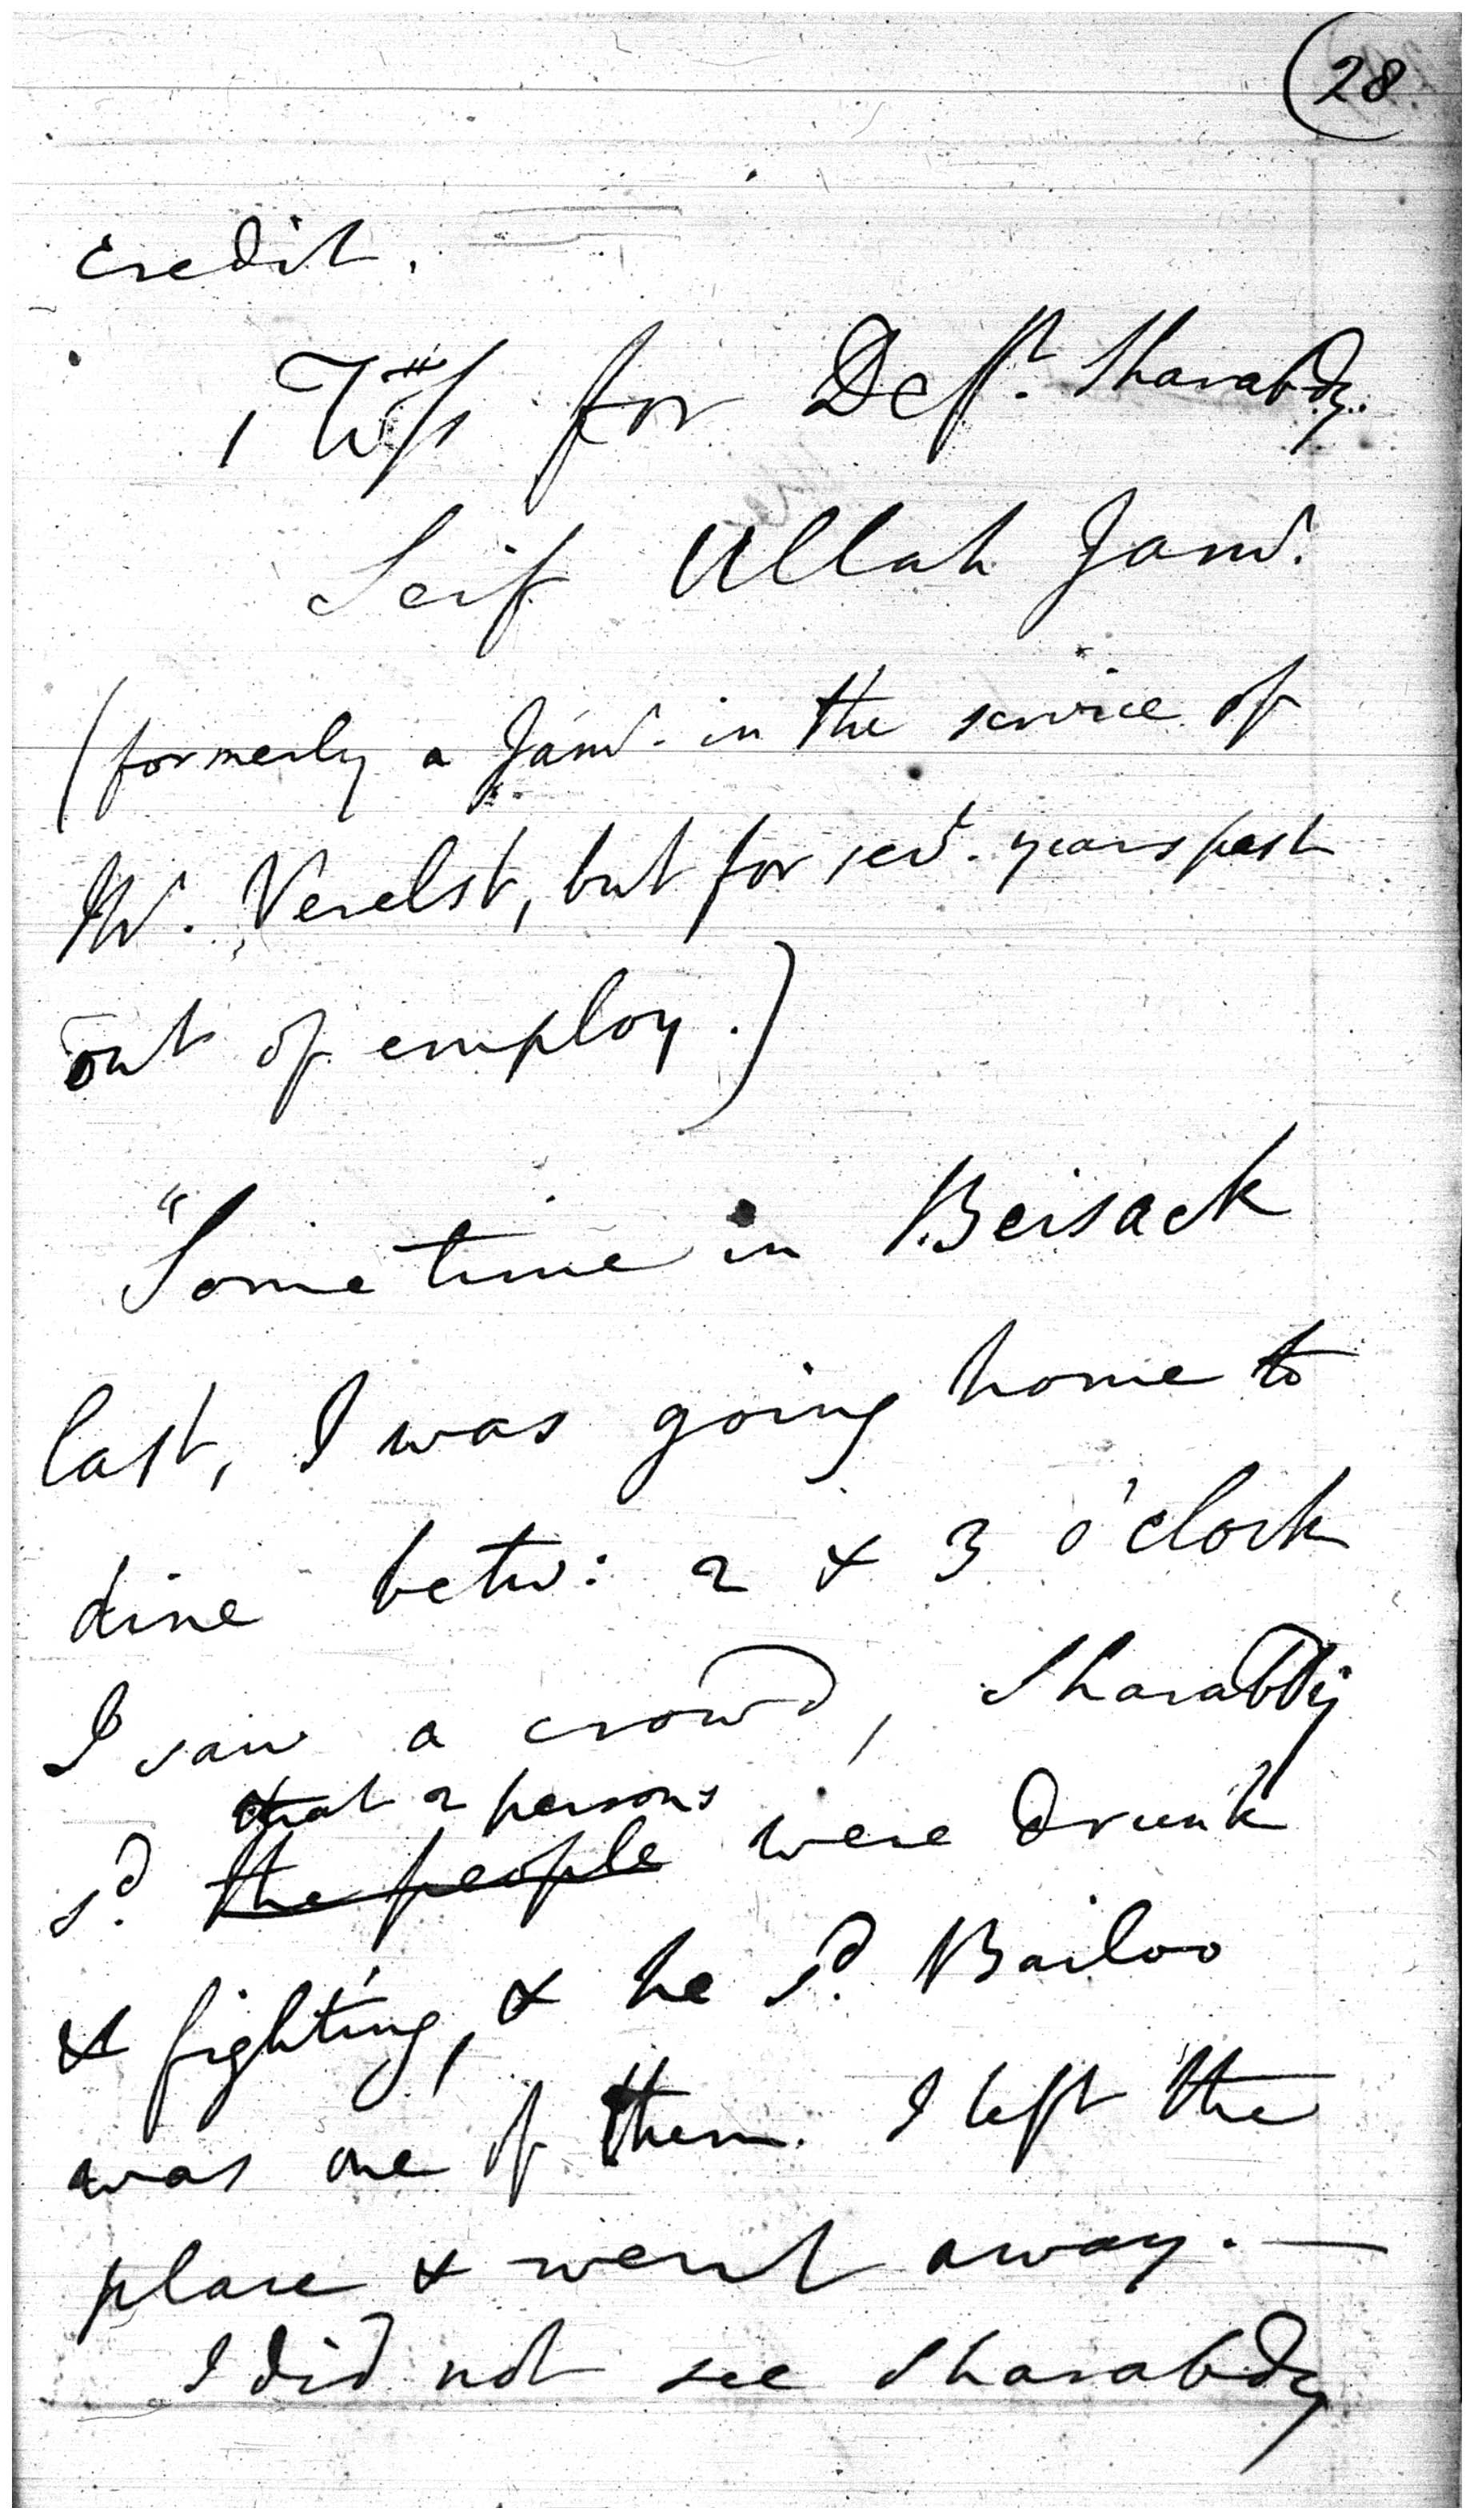 (28
credit.
1 Wss for Deft. Sharabdy.
Seif Ullah Jamr.
(formerly a Jamr. in the service of
Mr. Verelst, but for sevl. years past
out of employ.)
"Some time in Beisack
last, I was going home to
dine betw: 2 & 3 o'clock
I saw a crowd, Sharabdy
that 2 persons
sd. the people were drunk
& fighting, & he sd. Bailoo
was one of them. I left the
place & went away. —
I did not see Sharabdy